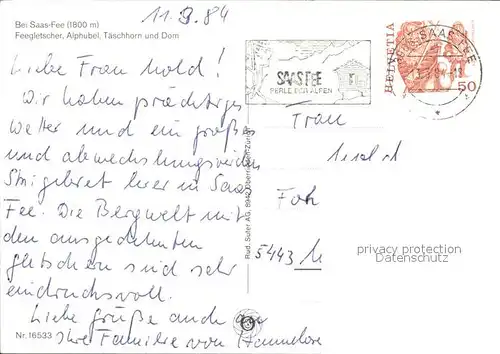 Bei Saas-Fee (1800 m)
Feegletscher, Alphubel, Täschhorn und Dom
11.9.84
Liebe Frau Mold!
Wir haben prächtiges
Wetter und ein großes
und abwechslungsreiches
Skigebiet hier in Saas
Fee. Die Bergwelt mit
den ausgedehnten
gletschern sind sehr
eindrucksvoll.
Liebe grüße auch an
Ihre Familie von Hannelore
Nr. 16533
Rud. Suter AG, 8942 Oberrieden-Zürich
SAAS FEE
PERLE DER ALPEN
SAAS-FEE
HELVETIA
50
Frau
5443
privacy protection
Datenschutz